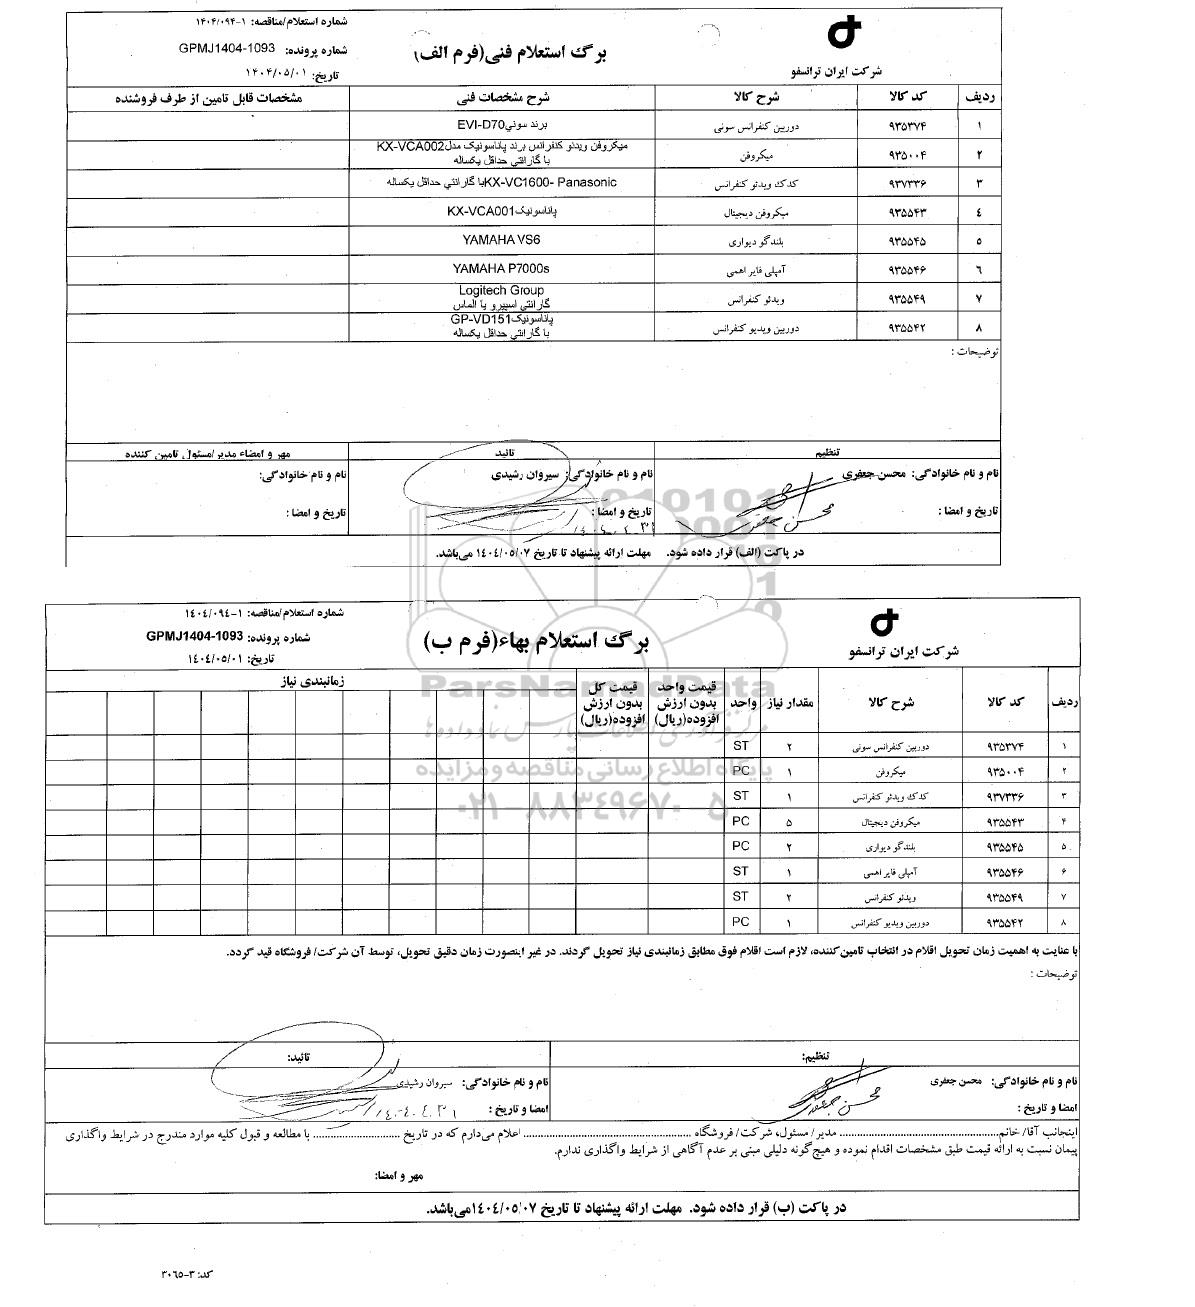 شماره استعلام/مناقصه: ۱-۱۴۰۴/۰۹۴
برگ استعلام فنی(فرم الف)
شماره پرونده: GPMJ1404-1093
شرکت ایران ترانسفو
تاریخ: ۱۴۰۴/۰۵/۰۱
ردیف کد کالا شرح کالا شرح مشخصات فنی مشخصات قابل تامین از طرف فروشنده
۱ ۹۳۵۳۷۴ دوربین کنفرانس سونی برند سوني EVI-D70
۲ ۹۳۵۰۰۴ میکروفن میکروفن ویدئو کنفرانس برند پاناسونیک مدل KX-VCA002
با گارانتي حداقل یکساله
۳ ۹۳۷۳۳۶ کدک ویدئو کنفرانس KX-VC1600- Panasonic با گارانتي حداقل یکساله
٤ ۹۳۵۵۴۳ میکروفن دیجیتال پاناسونیک KX-VCA001
۵ ۹۳۵۵۴۵ بلندگو دیواری YAMAHA VS6
٦ ۹۳۵۵۴۶ آمپلی فایر اهمی YAMAHA P7000s
۷ ۹۳۵۵۴۹ ویدئو کنفرانس Logitech Group
گارانتي اسپیرو یا الماس
۸ ۹۳۵۵۴۲ دوربین ویدیو کنفرانس پاناسونیک GP-VD151
با گارانتي حداقل یکساله
توضیحات :
تنظیم تائید مهر و امضاء مدیر/مسئول تامین کننده
نام و نام خانوادگی: محسن جعفری نام و نام خانوادگی: سیروان رشیدی نام و نام خانوادگی:
تاریخ و امضا : تاریخ و امضا : تاریخ و امضا :
محسن جعفری
در پاکت (الف) قرار داده شود. مهلت ارائه پیشنهاد تا تاریخ ۱٤۰٤/۰۵/۰۷ می‌باشد.
شماره استعلام/مناقصه: ۱-۱٤۰٤/۰۹٤
برگ استعلام بهاء(فرم ب)
شماره پرونده: GPMJ1404-1093
شرکت ایران ترانسفو
تاریخ: ۱٤۰٤/۰۵/۰۱
ردیف کد کالا شرح کالا مقدار نیاز واحد قیمت واحد بدون ارزش افزوده(ریال) قیمت کل بدون ارزش افزوده(ریال) زمانبندی نیاز
ParsNamadData
مرکز فرآوری اطلاعات پارس نماد داده‌ها
پایگاه اطلاع رسانی مناقصه و مزایده
۰۲۱-۸۸۳۴۹۶۷۰-۵
۱ ۹۳۵۳۷۴ دوربین کنفرانس سونی ۲ ST
۲ ۹۳۵۰۰۴ میکروفن ۱ PC
۳ ۹۳۷۳۳۶ کدک ویدئو کنفرانس ۱ ST
۴ ۹۳۵۵۴۳ میکروفن دیجیتال ۵ PC
۵ ۹۳۵۵۴۵ بلندگو دیواری ۲ PC
۶ ۹۳۵۵۴۶ آمپلی فایر اهمی ۱ ST
۷ ۹۳۵۵۴۹ ویدئو کنفرانس ۲ ST
۸ ۹۳۵۵۴۲ دوربین ویدیو کنفرانس ۱ PC
با عنایت به اهمیت زمان تحویل اقلام در انتخاب تامین‌کننده، لازم است اقلام فوق مطابق زمانبندی نیاز تحویل گردند. در غیر اینصورت زمان دقیق تحویل، توسط آن شرکت/ فروشگاه قید گردد.
توضیحات :
تنظیم: تائید:
نام و نام خانوادگی: محسن جعفری نام و نام خانوادگی: سیروان رشیدی
امضا و تاریخ : امضا و تاریخ :
محسن جعفری
اینجانب آقا/ خانم........................ مدیر/ مسئول، شرکت/ فروشگاه ........................ اعلام می‌دارم که در تاریخ ........................ با مطالعه و قبول کلیه موارد مندرج در شرایط واگذاری
پیمان نسبت به ارائه قیمت طبق مشخصات اقدام نموده و هیچ‌گونه دلیلی مبنی بر عدم آگاهی از شرایط واگذاری ندارم.
مهر و امضا:
در پاکت (ب) قرار داده شود. مهلت ارائه پیشنهاد تا تاریخ ۱٤۰٤/۰۵/۰۷ می‌باشد.
کد: ۳-۳۰٦۵